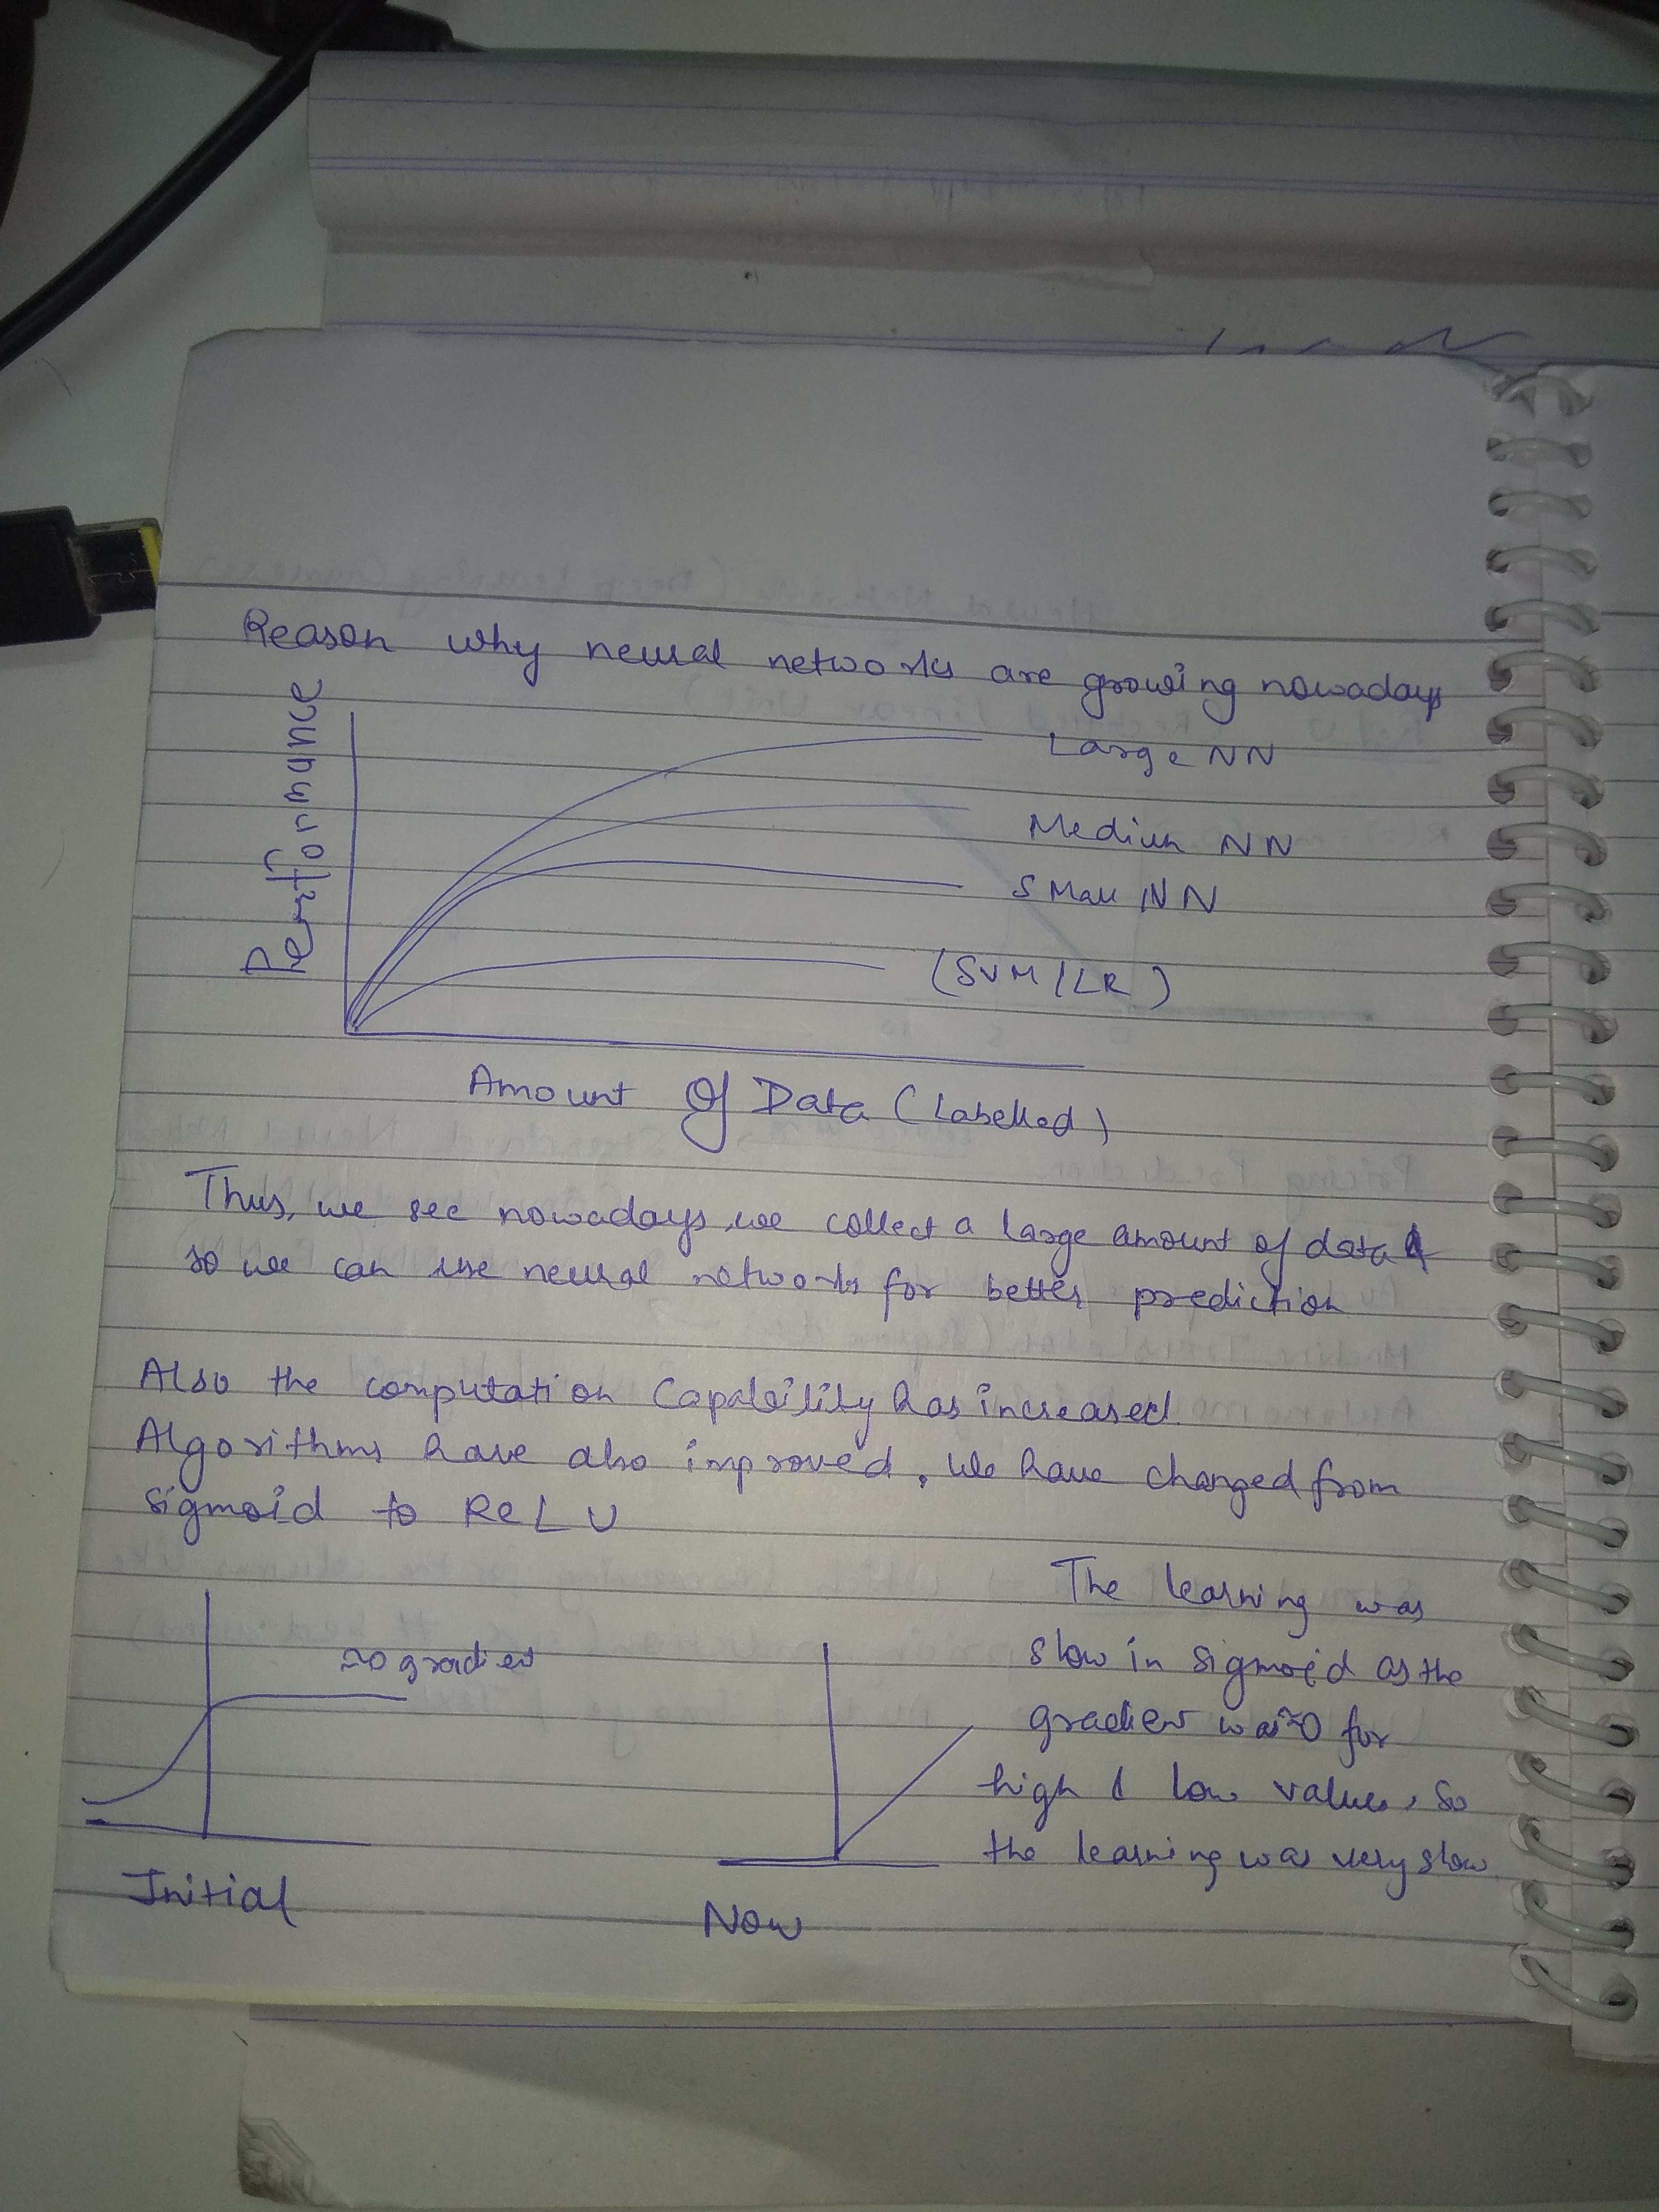 Reason why neural networks are growing nowadays
Performance
Large NN
Medium NN
Small NN
(SVM/LR)
Amount Of Data (Labelled)
Thus, we see nowadays, we collect a large amount of data &
so we can use neural networks for better prediction
Also the computation Capability has increased.
Algorithms have also improved, We have changed from
sigmoid to ReLU
≈0 gradient
Initial
Now
The learning was
slow in sigmoid as the
gradient was ≈0 for
high & low values, so
the learning was very slow